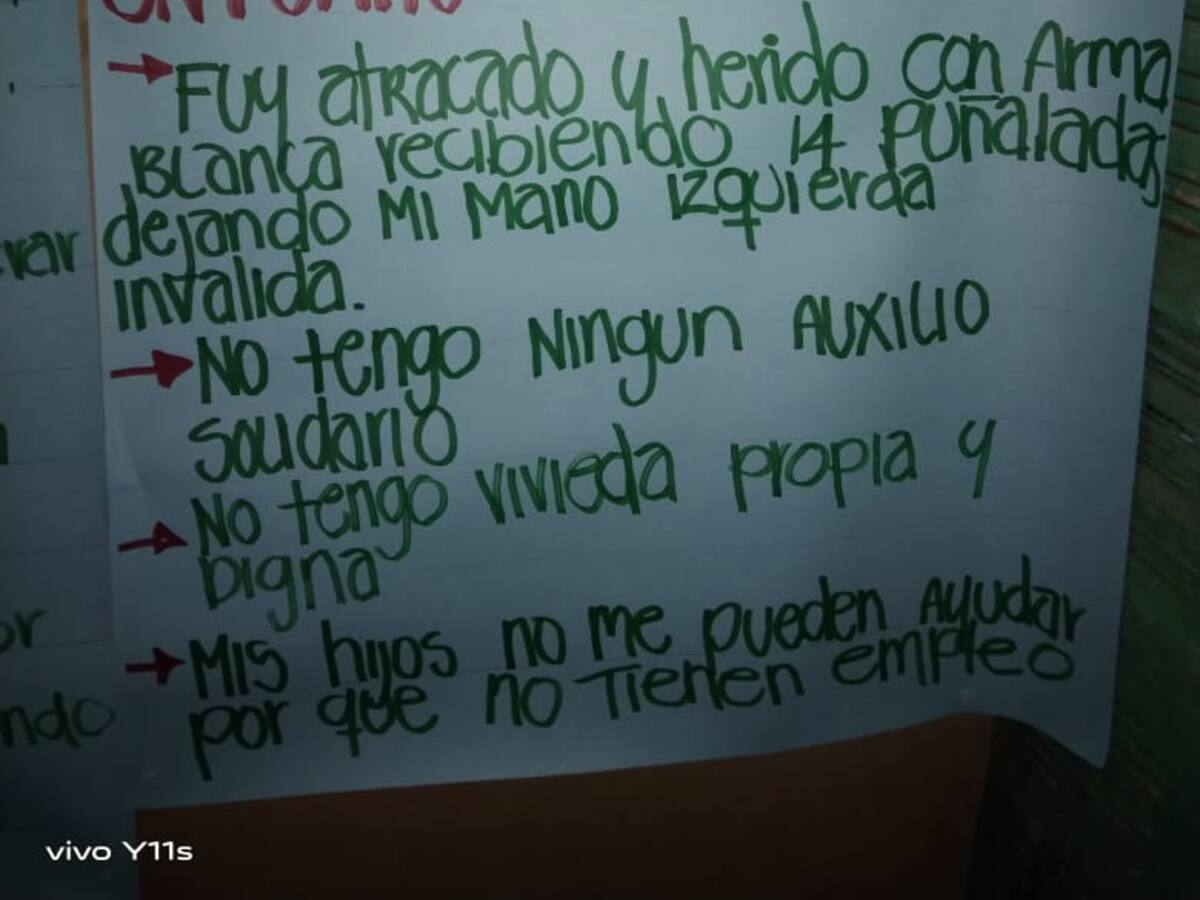 → Fuy atracado y herido con Arma
Blanca recibiendo 14 puñaladas
dejando Mi Mano izquierda
invalida.
→ No tengo Ningun AUXILIO
solidario
→ No tengo vivieda propia y
Digna
→ Mis hijos no me pueden Ayudar
por que no tienen empleo
rar
or
ndo
vivo Y11s